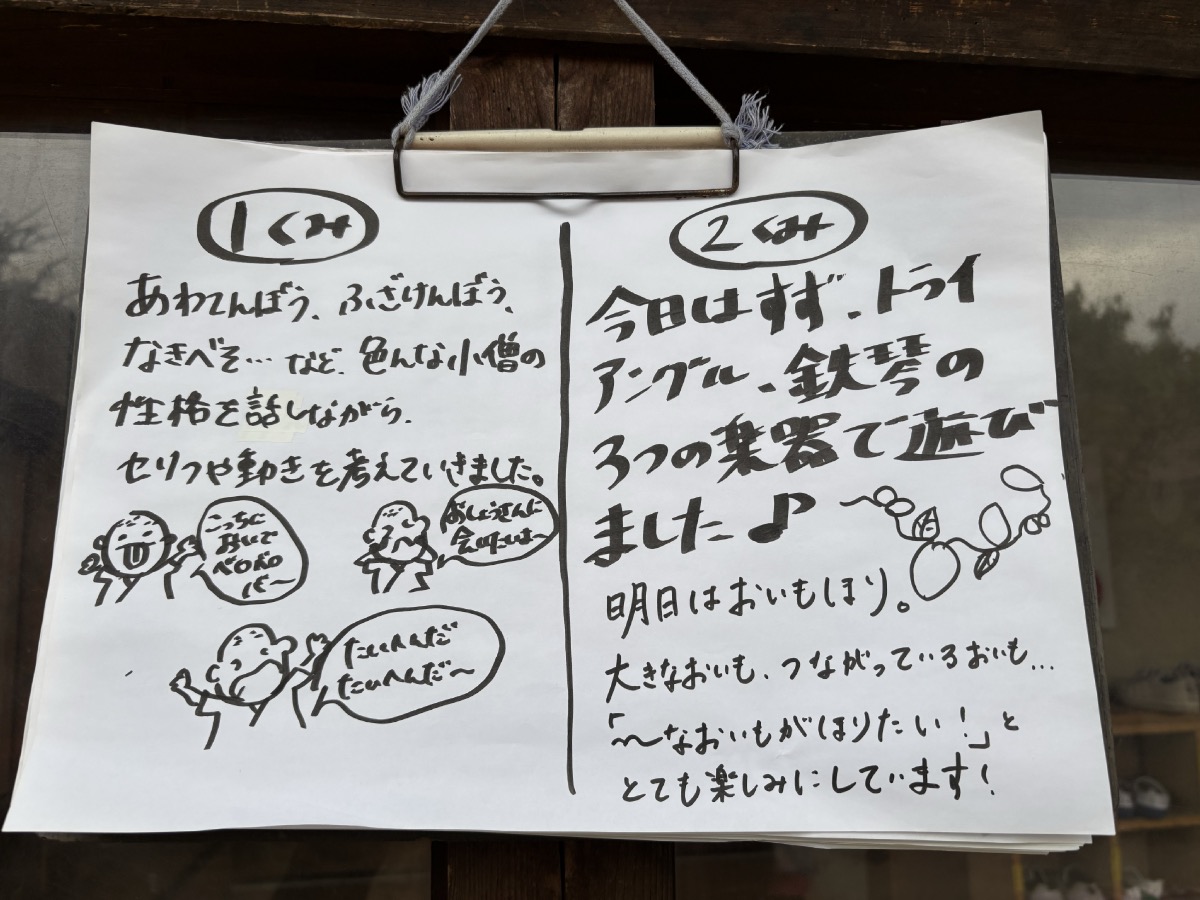 1くみ
あわてんぼう、ふざけんぼう、
なきべそ…など、色んな小僧の
性格を話しながら、
セリフや動きを考えていきました。
こっちに
おいで
ベロベロ
バ〜
おしょうさんに
会いたいよ〜
たいへんだ
たいへんだ〜
2くみ
今日はすず、トライ
アングル、鉄琴の
3つの楽器で遊び
ました♪
明日はおいもほり。
大きなおいも、つながっているおいも…
「〜なおいもがほりたい!」と
とても楽しみにしています!